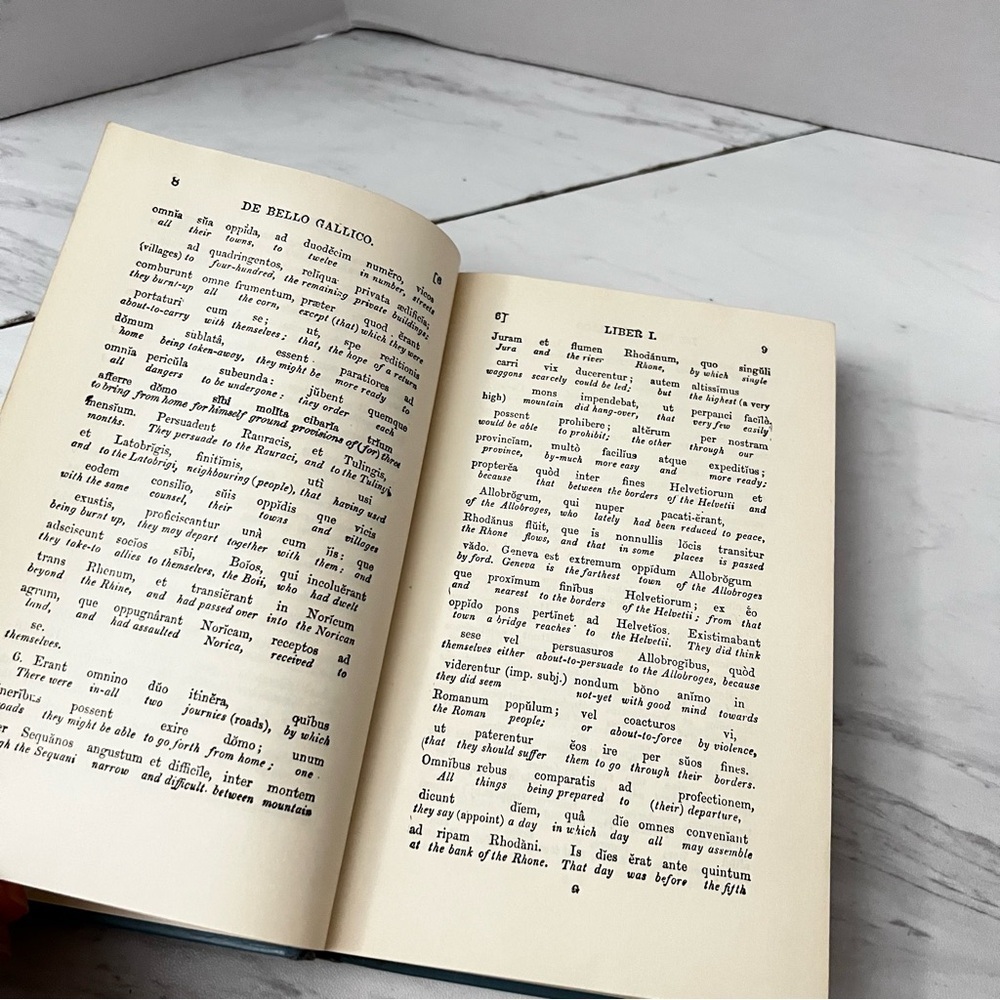 8
DE BELLO GALLICO.
[6
omnĭa sŭa oppĭda, ad duodĕcim numĕro, vicos
all their towns, to twelve in number, streets
ad quadringentos, relĭqua privata ædificĭa;
(villages) to four-hundred, the remaining private buildings;
comburunt omne frumentum, præter quod ĕrant
they burnt-up all the corn, except (that) which they were
portaturi cum se; ut, spe reditionis
about-to-carry with themselves; that, the hope of a return
dŏmum sublatâ, essent paratiores ad
home being taken-away, they might be more ready to
omnĭa pericŭla subeunda: jŭbent quemque
all dangers to be undergone: they order each
afferre dŏmo sĭbi molĭta cibarĭa trĭum
to bring from home for himself ground provisions of (for) three
mensĭum. Persuadent Rauracis, et Tulingis,
months. They persuade to the Rauraci, and to the Tulingi
et Latobrĭgis, finitĭmis, utì usi
and to the Latobrigi, neighbouring (people), that having used
eodem consilĭo, sŭis oppĭdis que vicis
with the same counsel, their towns and villages
exustis, proficiscantur unà cum ĭis: que
being burnt up, they may depart together with them; and
adsciscunt socĭos sĭbi, Boĭos, qui incoluĕrant
they take-to allies to themselves, the Boii, who had dwelt
trans Rhenum, et transiĕrant in Norĭcum
beyond the Rhine, and had passed over into the Norican
agrum, que oppugnârant Norĭcam, receptos ad
land, and had assaulted Norica, received to
se.
themselves.
6. Erant omnino dŭo itinĕra, quĭbus
There were in-all two journies (roads), by which
inerĭbus possent exire dŏmo; unum
oads they might be able to go forth from home; one
er Sequănos angustum et difficĭle, inter montem
gh the Sequani narrow and difficult. between mountain
6]
LIBER I.
9
Juram et flumen Rhodănum, quo singŭli
Jura and the river Rhone, by which single
carri vix ducerentur; autem altissĭmus
waggons scarcely could be led; but the highest (a very
mons impendebat, ut perpauci facĭlè
high) mountain did hang-over, that very few easily
possent prohibere; altĕrum per nostram
would be able to prohibit; the other through our
provincĭam, multò facilĭus atque expeditĭus;
province, by-much more easy and more ready;
propterĕa quòd inter fines Helvetiorum et
because that between the borders of the Helvetii and
Allobrŏgum, qui nuper pacati-ĕrant,
of the Allobroges, who lately had been reduced to peace,
Rhodănus flŭit, que is nonnullis lŏcis transitur
the Rhone flows, and that in some places is passed
vădo. Geneva est extremum oppĭdum Allobrŏgum
by ford. Geneva is the farthest town of the Allobroges
que proxĭmum finĭbus Helvetiorum; ex ĕo
and nearest to the borders of the Helvetii; from that
oppĭdo pons pertĭnet ad Helvetĭos. Existimabant
town a bridge reaches to the Helvetii. They did think
sese vel persuasuros Allobrogĭbus, quòd
themselves either about-to-persuade to the Allobroges, because
viderentur (imp. subj.) nondum bŏno anĭmo in
they did seem not-yet with good mind towards
Romanum popŭlum; vel coacturos vi,
the Roman people; or about-to-force by violence,
ut paterentur ĕos ire per sŭos fines.
(that they should suffer them to go through their borders.
Omnĭbus rebus comparatis ad profectionem,
All things being prepared to (their) departure,
dicunt dĭem, quâ dĭe omnes conveniant
they say (appoint) a day in which day all may assemble
ad ripam Rhodăni. Is dĭes ĕrat ante quintum
at the bank of the Rhone. That day was before the fifth